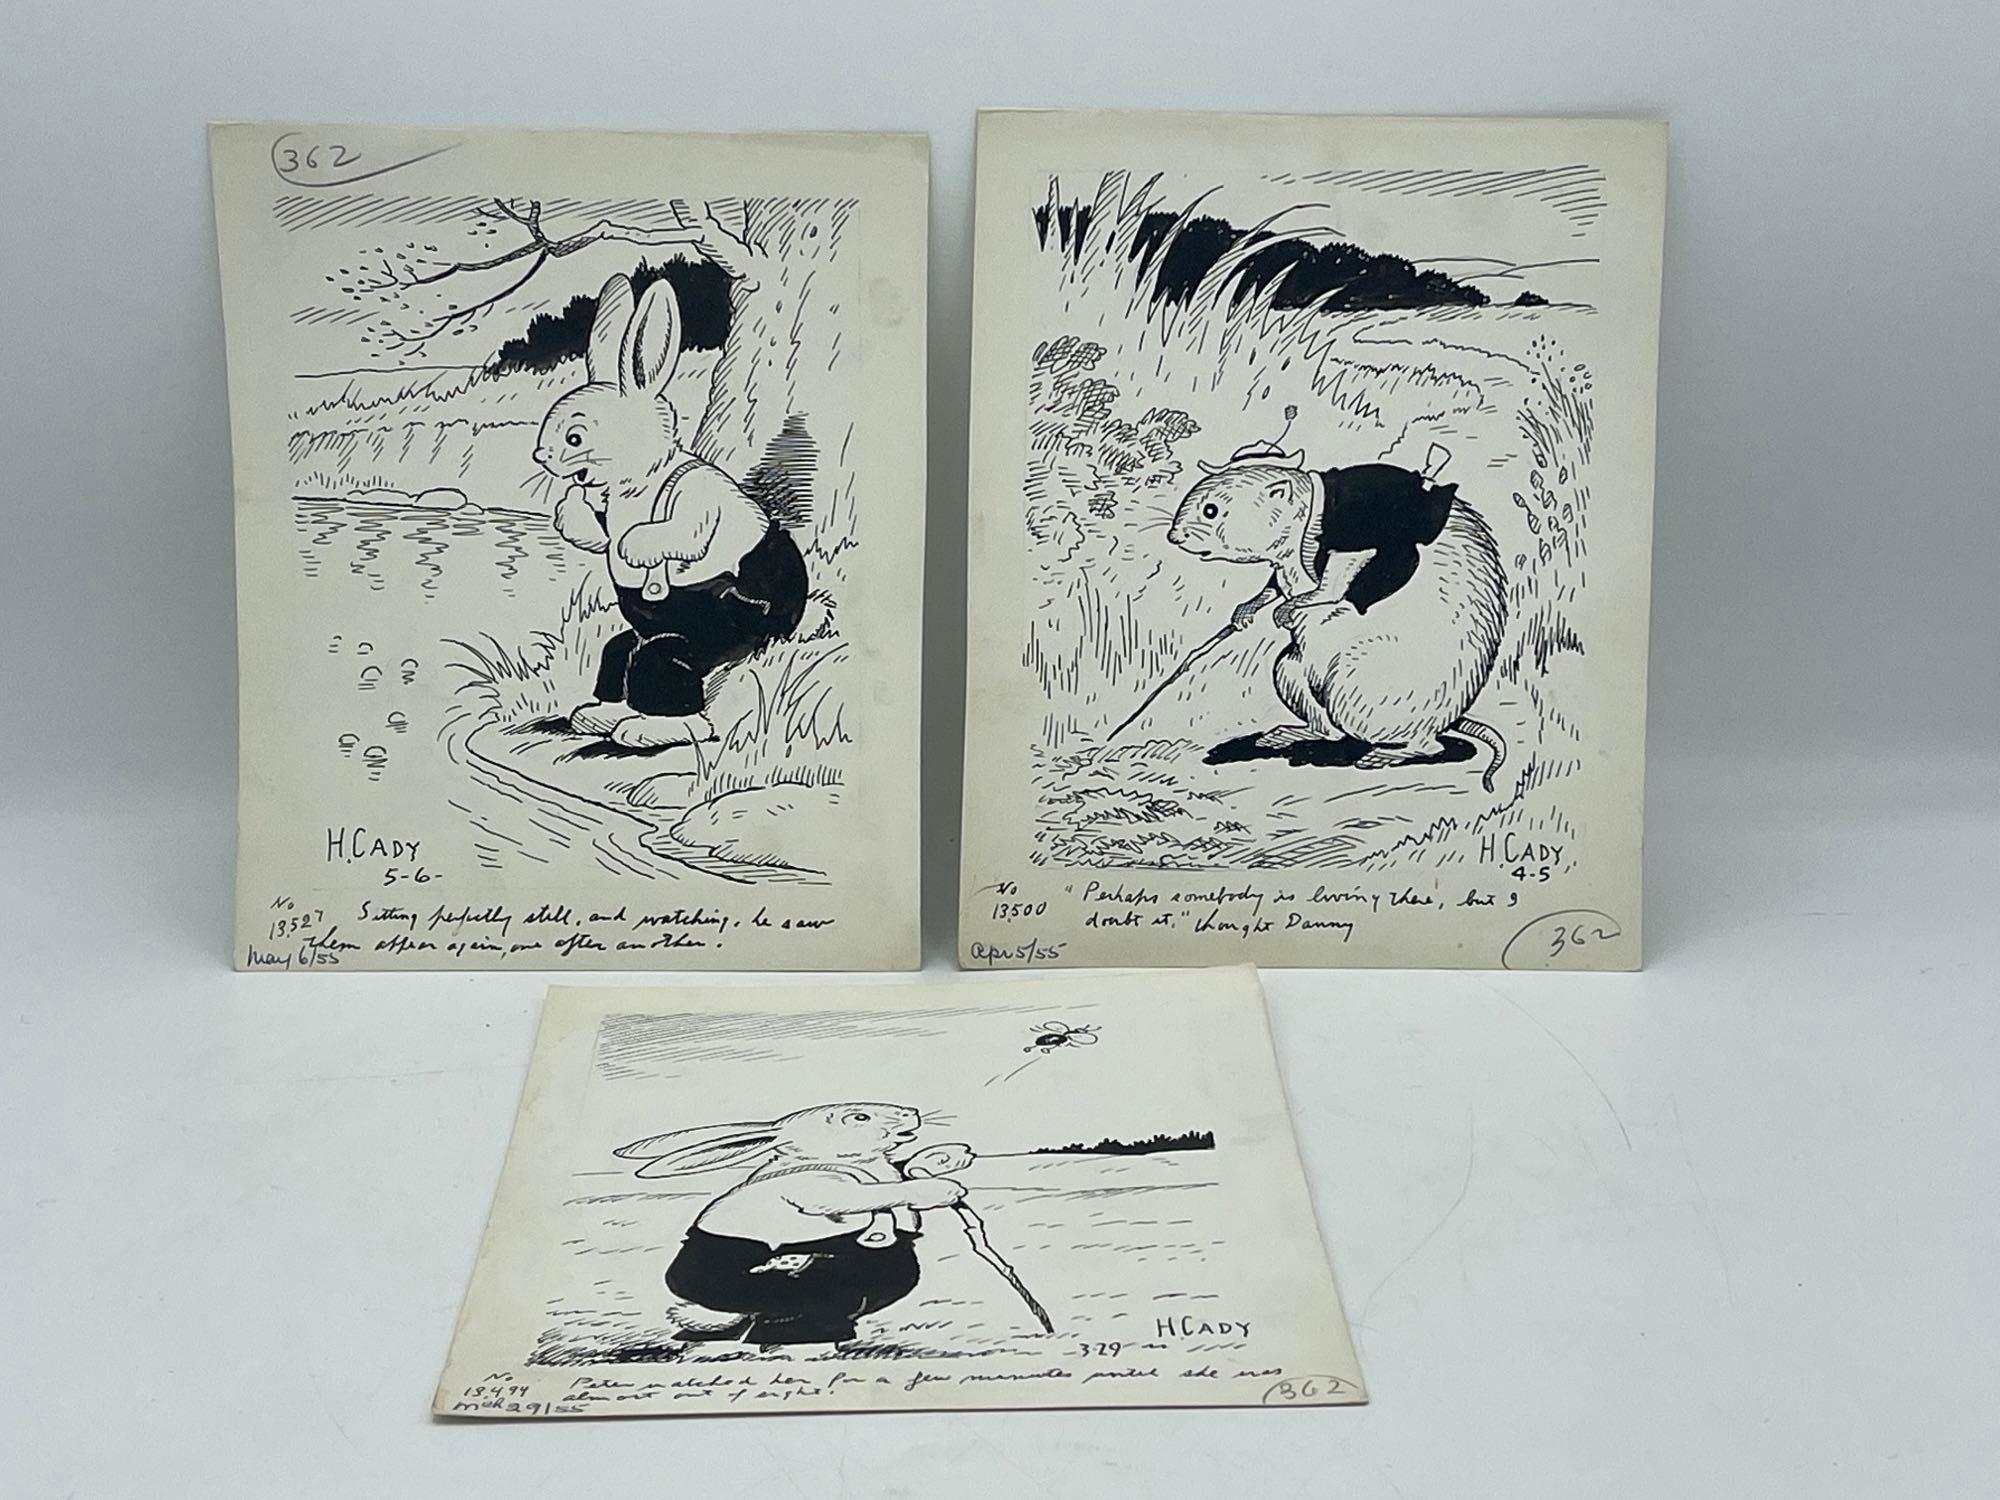 362
H. CADY
5-6-
No
13,527
Sitting perfectly still, and watching, he saw
them appear again, one after another.
May 6/55
H. CADY
4-5
No
13,500
"Perhaps somebody is living there, but I
doubt it," thought Danny
Apr 5/55
362
H. CADY
3-29
No
13,494
Peter watched her for a few minutes until she was
almost out of sight.
Mch 29/55
362